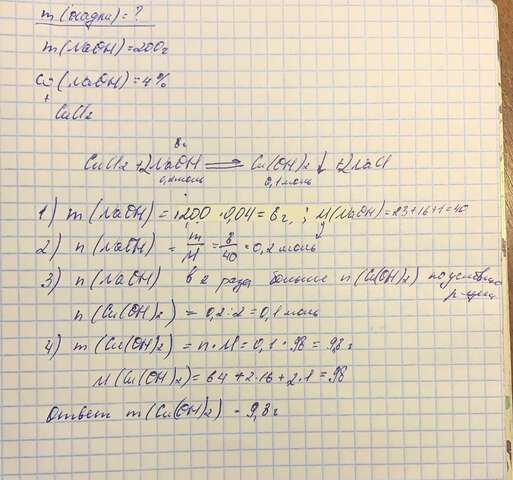 m (осадка) = ?
m(NaOH) = 200г
ω (NaOH) = 4%
+
CuCl2
8г
CuCl2 + 2NaOH ⇒ Cu(OH)2↓ + 2NaCl
0,2 моль 0,1 моль
1) m (NaOH) = 200 · 0,04 = 8 г, ; M(NaOH) = 23+16+1=40
2) n (NaOH) = m/M = 8/40 = 0,2 моль
3) n (NaOH) в 2 раза больше n(Cu(OH)2) по условию
р-ции
n (Cu(OH)2) = 0,2 : 2 = 0,1 моль
4) m (Cu(OH)2) = n · M = 0,1 · 98 = 9,8 г
M (Cu(OH)2) = 64 + 2·16 + 2·1 = 98
Ответ m (Cu(OH)2) - 9,8 г